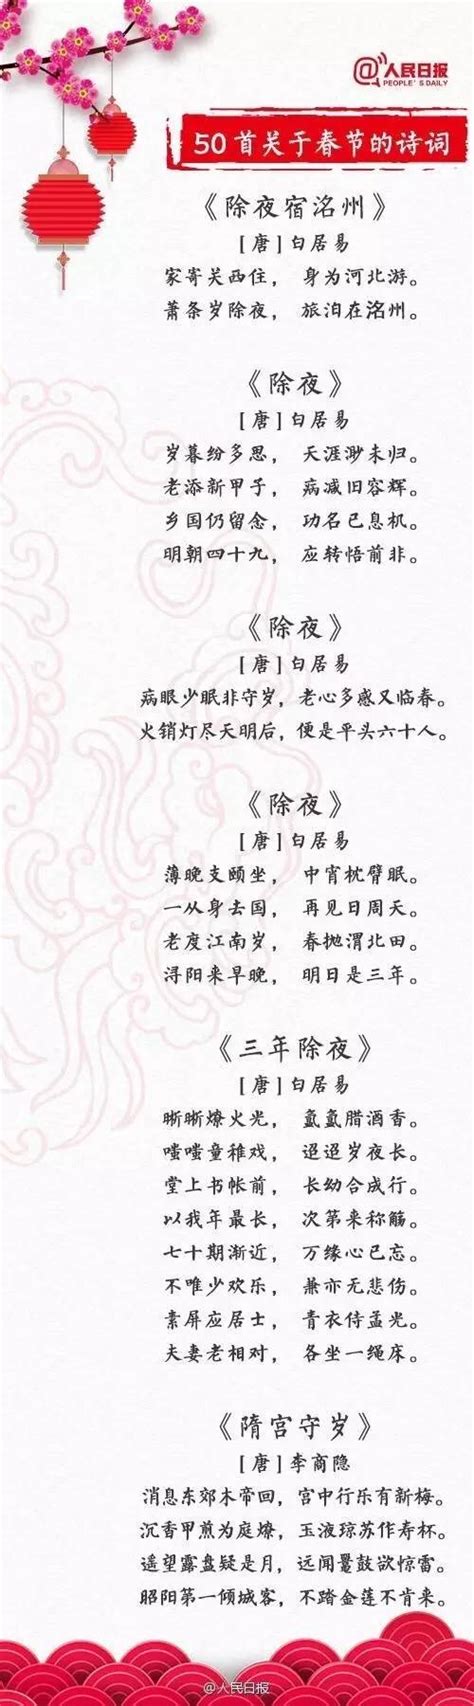 @人民日报
PEOPLE'S DAILY
50首关于春节的诗词
《除夜宿洺州》
[唐]白居易
家寄关西住， 身为河北游。
萧条岁除夜， 旅泊在洺州。
《除夜》
[唐]白居易
岁暮纷多思， 天涯渺未归。
老添新甲子， 病减旧容辉。
乡国仍留念， 功名已息机。
明朝四十九， 应转悟前非。
《除夜》
[唐]白居易
病眼少眠非守岁，老心多感又临春。
火销灯尽天明后，便是平头六十人。
《除夜》
[唐]白居易
薄晚支颐坐， 中宵枕臂眠。
一从身去国， 再见日周天。
老度江南岁， 春抛渭北田。
浔阳来早晚， 明日是三年。
《三年除夜》
[唐]白居易
晰晰燎火光， 氲氲腊酒香。
嗤嗤童稚戏， 迢迢岁夜长。
堂上书帐前， 长幼合成行。
以我年最长， 次第来称觞。
七十期渐近， 万缘心已忘。
不唯少欢乐， 兼亦无悲伤。
素屏应居士， 青衣侍孟光。
夫妻老相对， 各坐一绳床。
《隋宫守岁》
[唐]李商隐
消息东郊木帝回，宫中行乐有新梅。
沉香甲煎为庭燎，玉液琼苏作寿杯。
遥望露盘疑是月，远闻鼍鼓欲惊雷。
昭阳第一倾城客，不踏金莲不肯来。
@人民日报